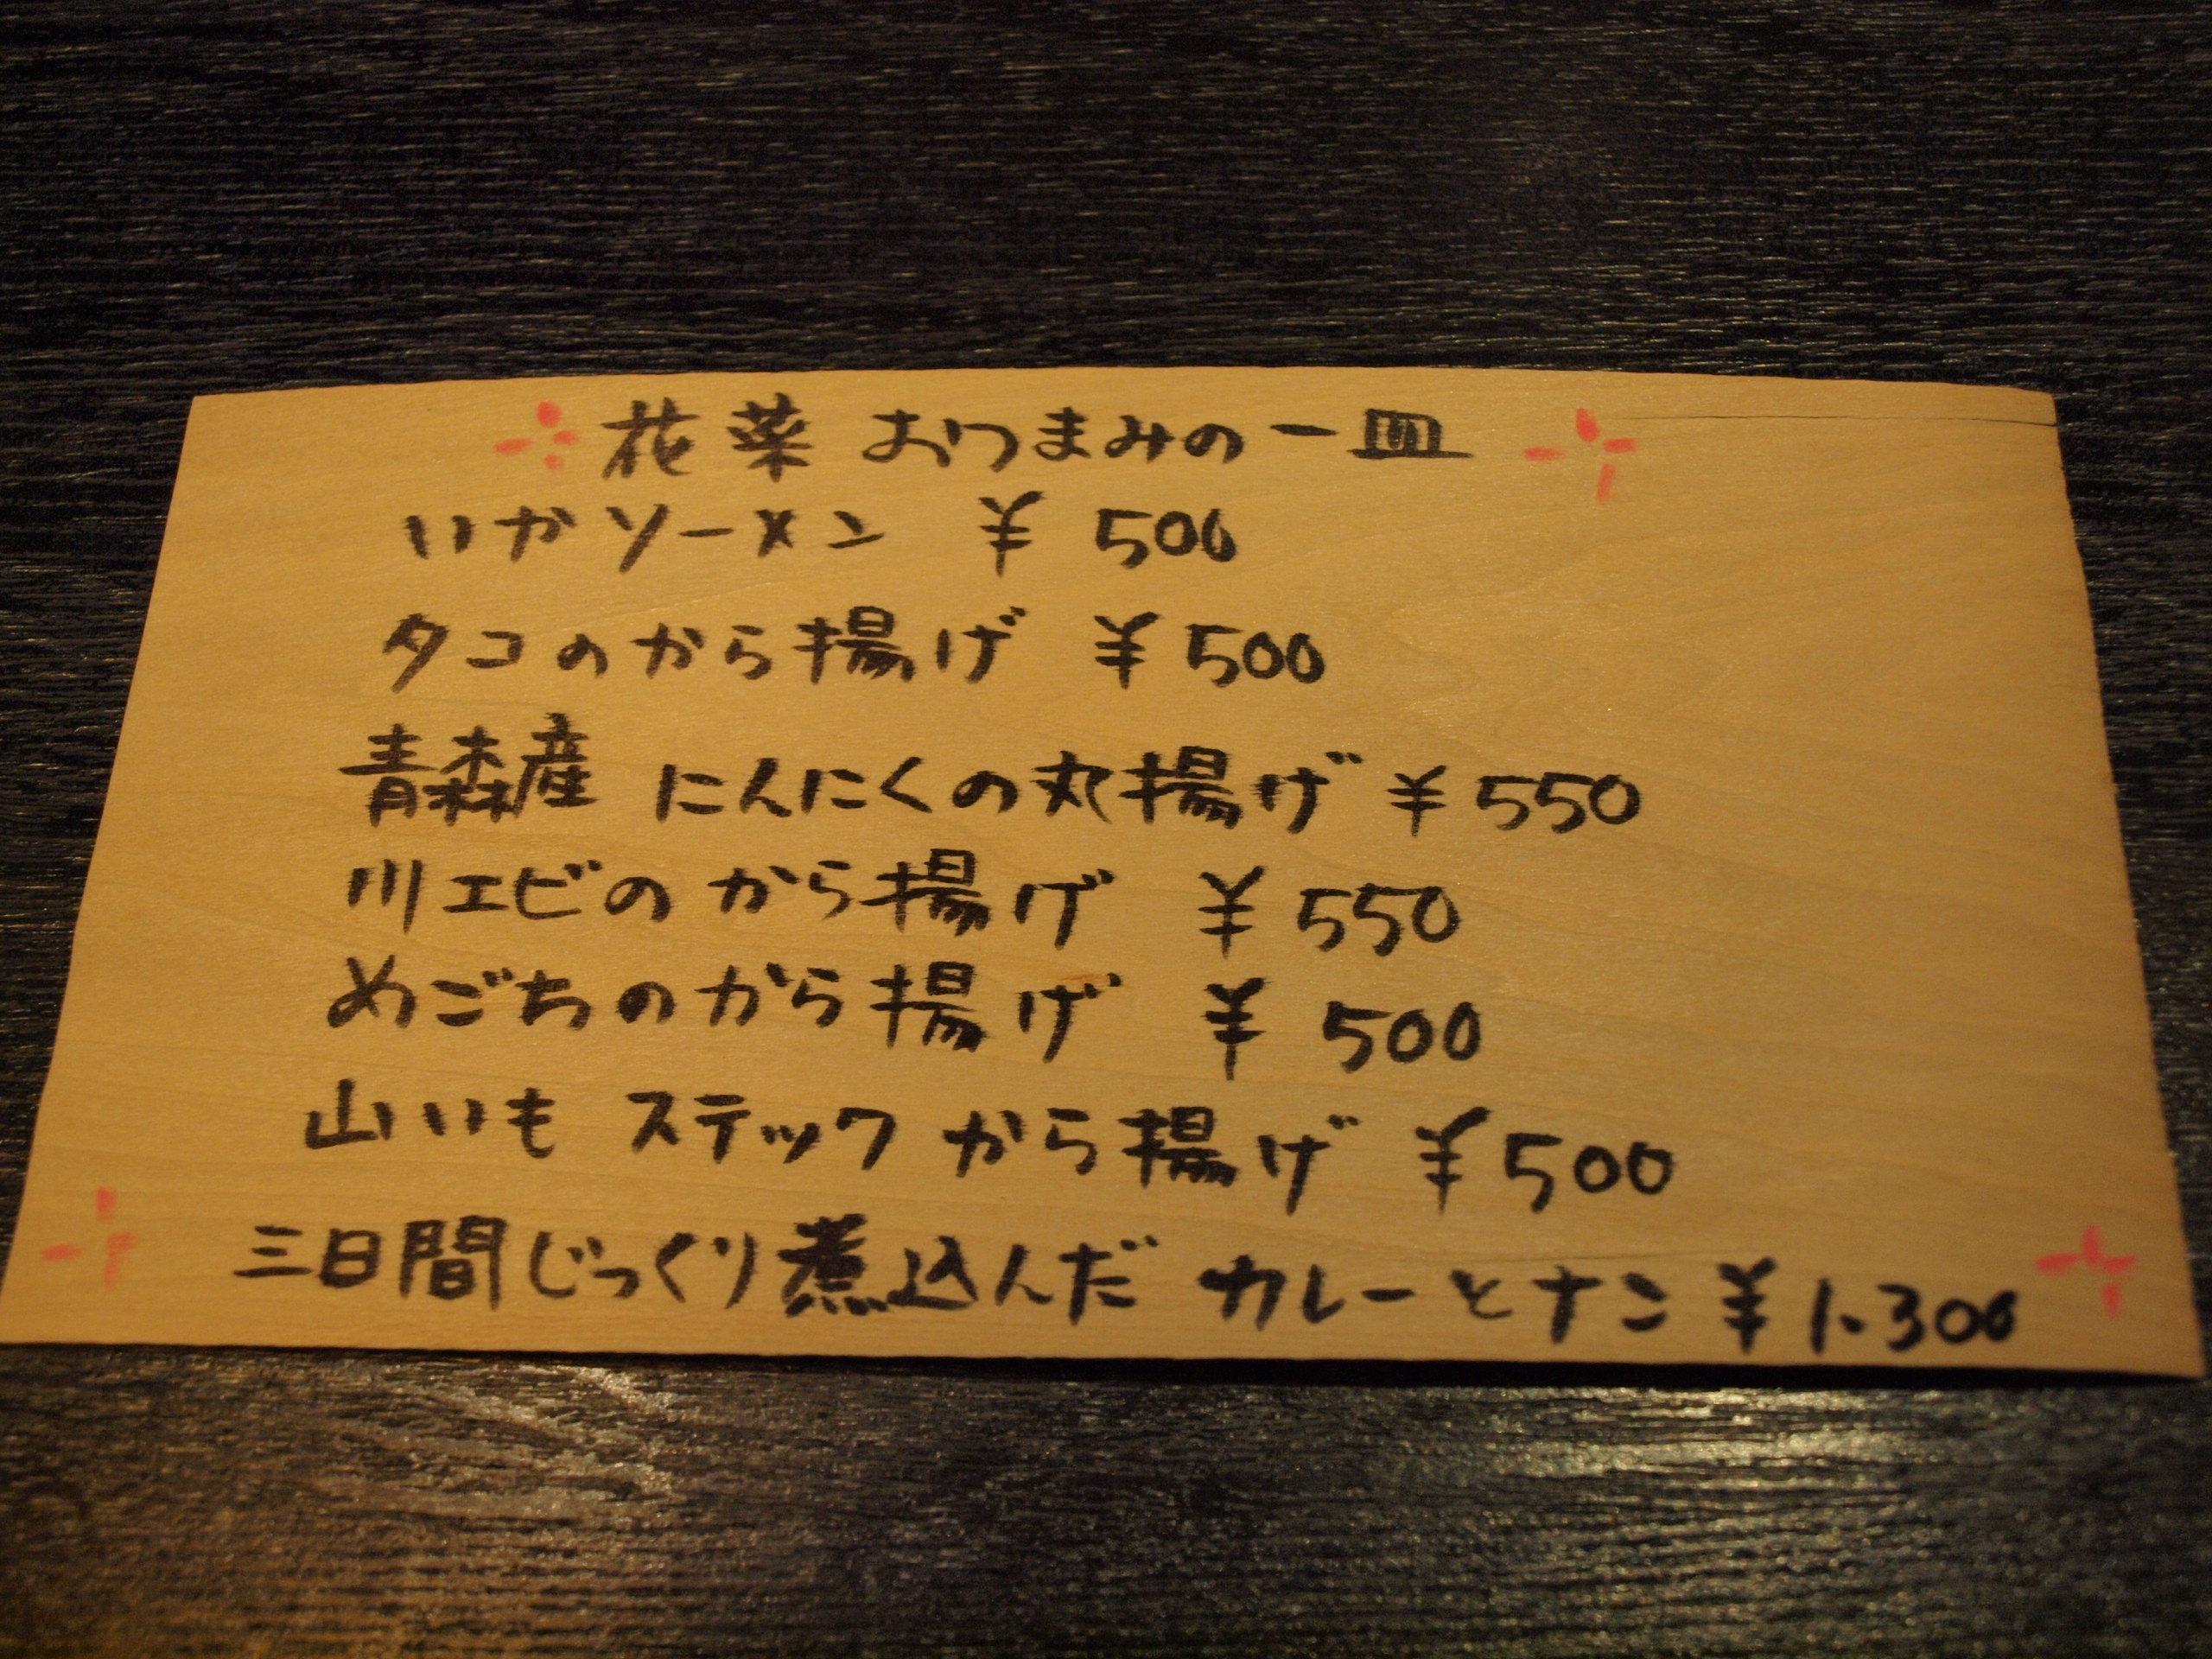 花菜 おつまみの一皿
いかソーメン ¥500
タコのから揚げ ¥500
青森産 にんにくの丸揚げ ¥550
川エビのから揚げ ¥550
めごちのから揚げ ¥500
山いも スティックから揚げ ¥500
三日間じっくり煮込んだ カレーとナン ¥1.300